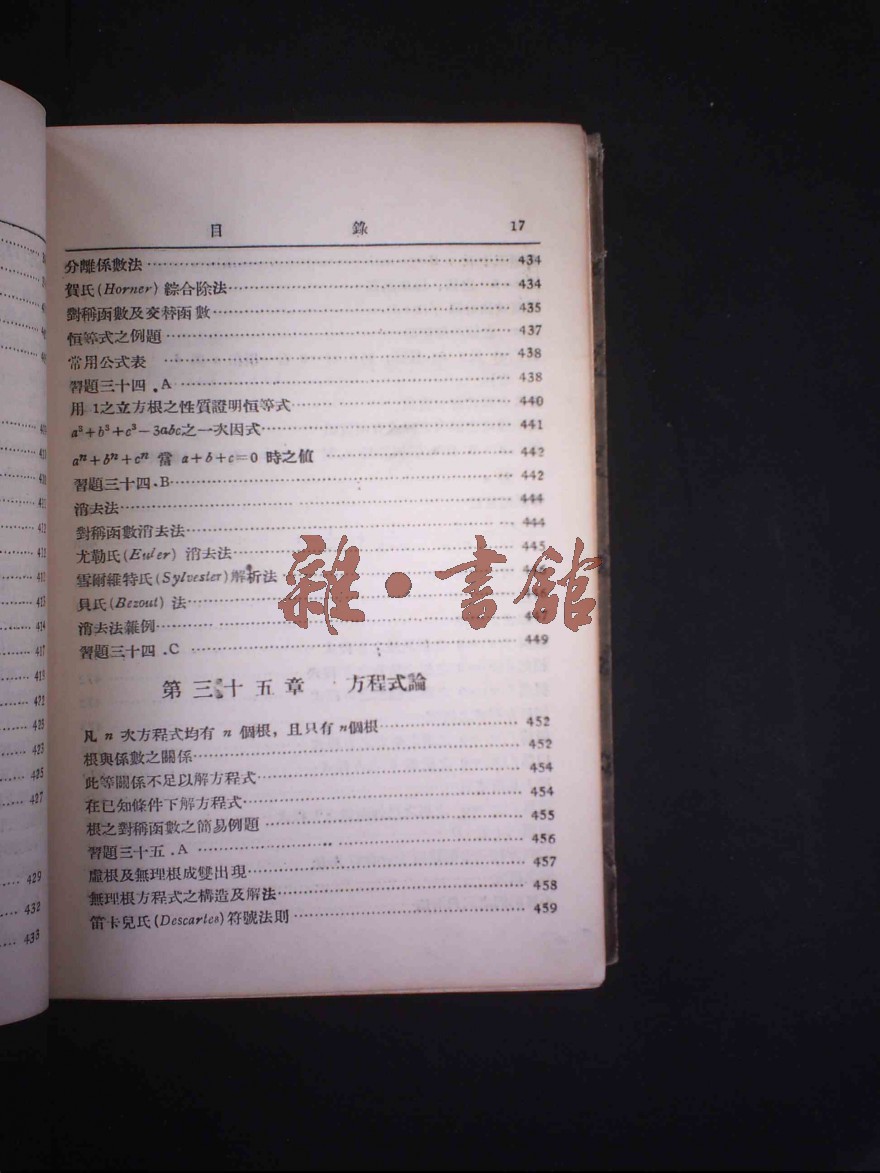 目 錄 17
分離係數法 434
賀氏(Horner)綜合除法 434
對稱函數及交替函數 435
恒等式之例題 437
常用公式表 438
習題三十四.A 438
用 1之立方根之性質證明恒等式 440
a³+b³+c³-3abc之一次因式 441
aⁿ+bⁿ+cⁿ 當 a+b+c=0 時之值 442
習題三十四.B 442
消去法 444
對稱函數消去法 444
尤勒氏(Euler) 消去法 445
雪爾維特氏(Sylvester)解析法
貝氏(Bezout) 法
消去法雜例 447
習題三十四.C 449
第三十五章 方程式論
凡 n 次方程式均有 n 個根,且只有 n個根 452
根與係數之關係 452
此等關係不足以解方程式 454
在已知條件下解方程式 454
根之對稱函數之簡易例題 455
習題三十五.A 456
虛根及無理根成雙出現 457
無理根方程式之構造及解法 458
笛卡兒氏(Descartes)符號法則 459
雜·書館
412
413
414
417
419
422
423
423
425
427
429
432
433